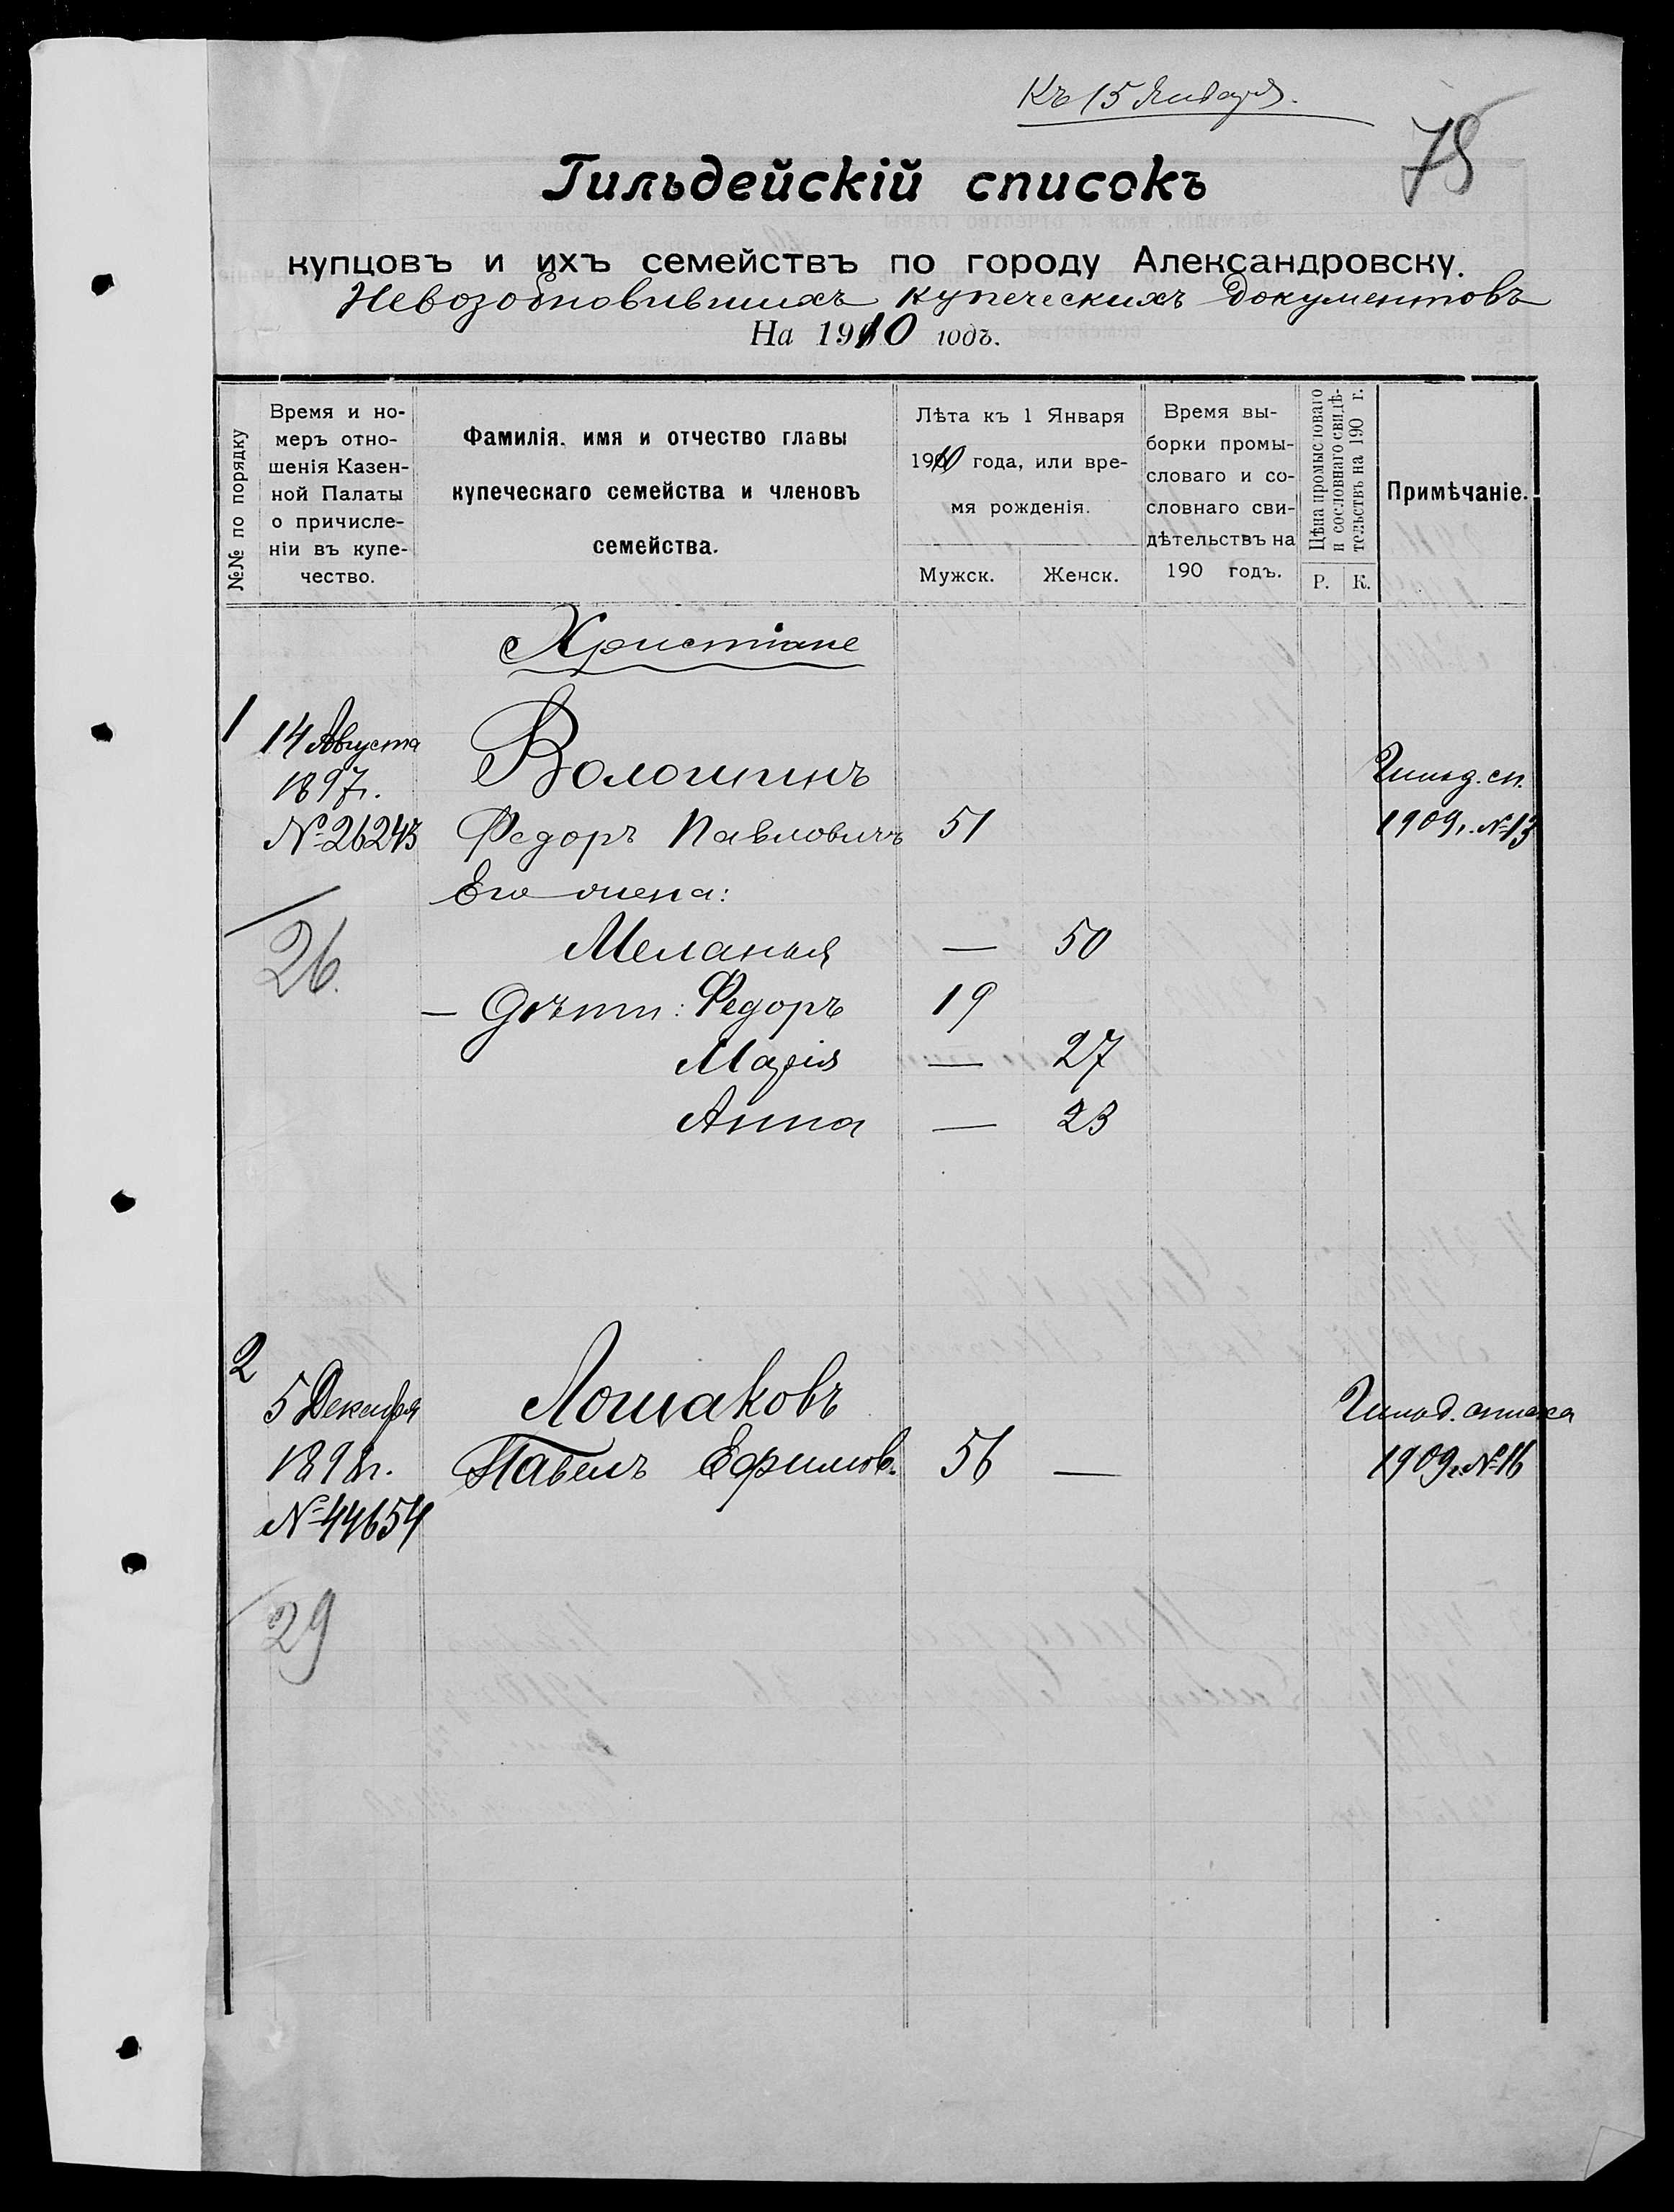 Къ 15 Января.
78
Гильдейскій списокъ
купцовъ и ихъ семействъ по городу Александровску.
Невозобновившихъ купеческихъ документовъ
На 1910 годъ.
№№ по порядку
Время и но-
меръ отно-
шенія Казен-
ной Палаты
о причисле-
ніи въ купе-
чество.
Фамилія. имя и отчество главы
купеческаго семейства и членовъ
семейства.
Лѣта къ 1 Января
1910 года, или вре-
мя рожденія.
Мужск. Женск.
Время вы-
борки промы-
словаго и со-
словнаго сви-
дѣтельствъ на
190 годъ.
Цѣна промысловаго
и сословнаго свидѣ-
тельствъ на 190 г.
Р. К.
Примѣчаніе.
Христіане
1 14 Августа Волошинъ Гильд. сп.
1897г.
№ 26243 Федоръ Павловичъ 51 1909г. № 13
Его жена:
26. Меланья — 50
— Дѣти: Федоръ 19
Марія — 27
Анна — 23
2
5 Декабря Лошаковъ Гильд. списка
1898г. Павелъ Ефимов. 56 — 1909г. № 16
№ 44654
29